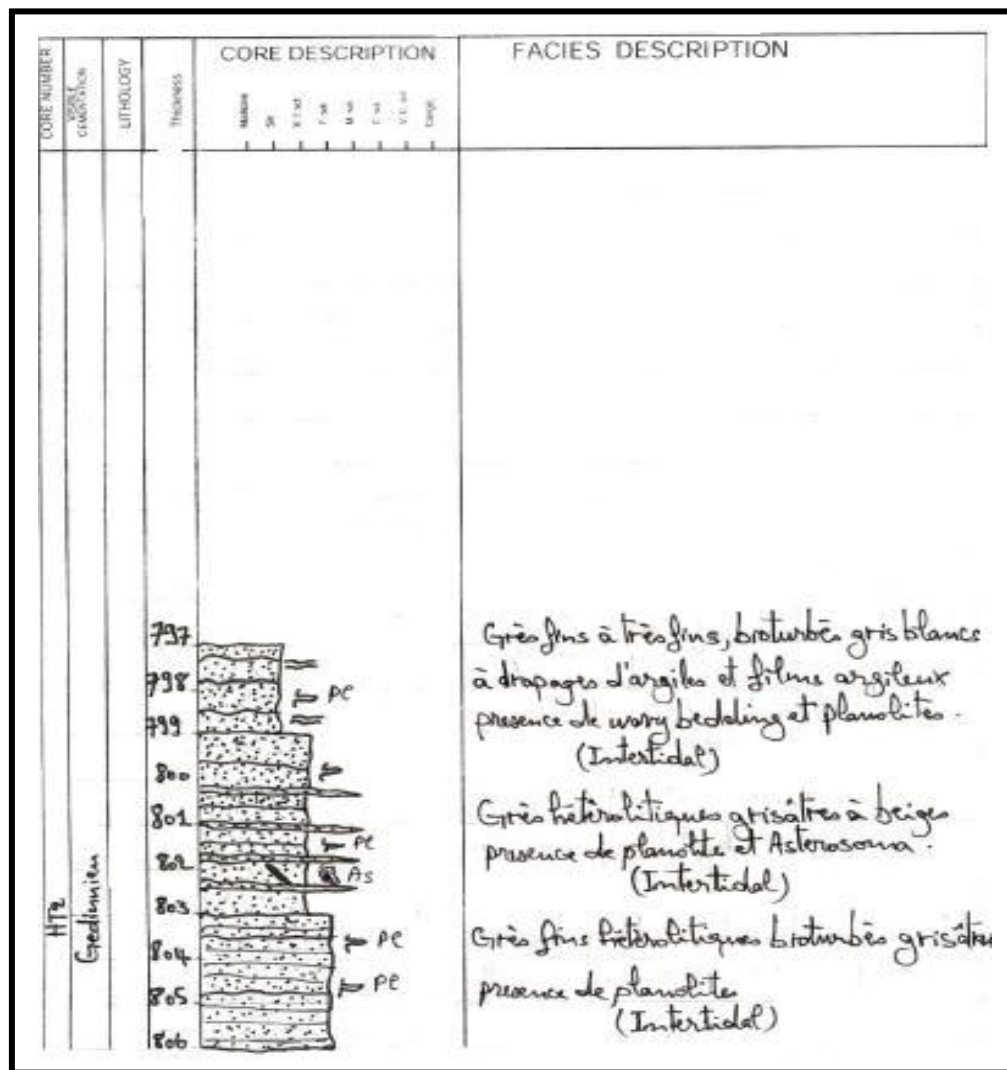 CORE NUMBER
VISIBLE CEMENTATION
LITHOLOGY
Thickness
CORE DESCRIPTION
FACIES DESCRIPTION
797
798
799
800
801
802
803
804
805
806
HT2
Gedinnien
Pl
Pl
As
Pl
Pl
Grès fins à très fins, bioturbés gris blancs
à drapages d'argiles et films argileux
presence de wavy bedding et planolites.
(Intertidal)
Grès hétérolitiques grisâtres à beiges
presence de planolite et Asterosoma.
(Intertidal)
Grès fins hétérolitiques bioturbés grisâtres
presence de planolites
(Intertidal)